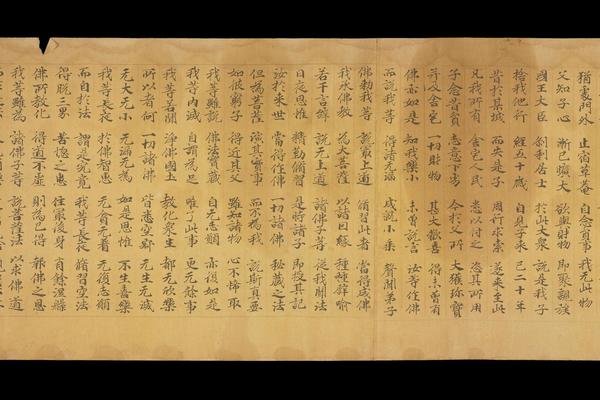 猶處門外 止宿草菴 自念貧事 我无此物
父知子心 漸已曠大 欲與財物 即聚親族
國王大臣 剎利居士 於此大眾 說是我子
捨我他行 經五十歲 自見子來 已二十年
昔於某城 而失是子 周行求索 遂來至此
凡我所有 舍宅人民 悉以付之 恣其所用
子念昔貧 志意下劣 今於父所 大獲珍寶
并及舍宅 一切財物 甚大歡喜 得未曾有
佛亦如是 知我樂小 未曾說言 汝等作佛
而說我等 得諸无漏 成就小乘 聲聞弟子
佛勅我等 說最上道 脩習此者 當得成佛
我承佛教 為大菩薩 以諸因緣 種種譬喻
若干言辭 說无上道 諸佛子等 從我聞法
日夜思惟 精勤脩習 是時諸佛 即授其記
汝於來世 當得作佛 一切諸佛 秘藏之法
但為菩薩 演其實事 而不為我 說斯真要
如彼窮子 得近其父 雖知諸物 心不悕取
我等雖說 佛法寶藏 自无志願 亦復如是
我等內滅 自謂為足 唯了此事 更无餘事
我等若聞 淨佛國土 教化眾生 都无欣樂
所以者何 一切諸法 皆悉空寂 无生无滅
无大无小 无漏无為 如是思惟 不生喜樂
我等長夜 於佛智慧 无貪无著 无復志願
而自於法 謂是究竟 我等長夜 脩習空法
得脫三界 苦惱之患 住最後身 有餘涅槃
佛所教化 得道不虛 則為已得 報佛之恩
我等雖為 諸佛子等 說菩薩法 以求佛道